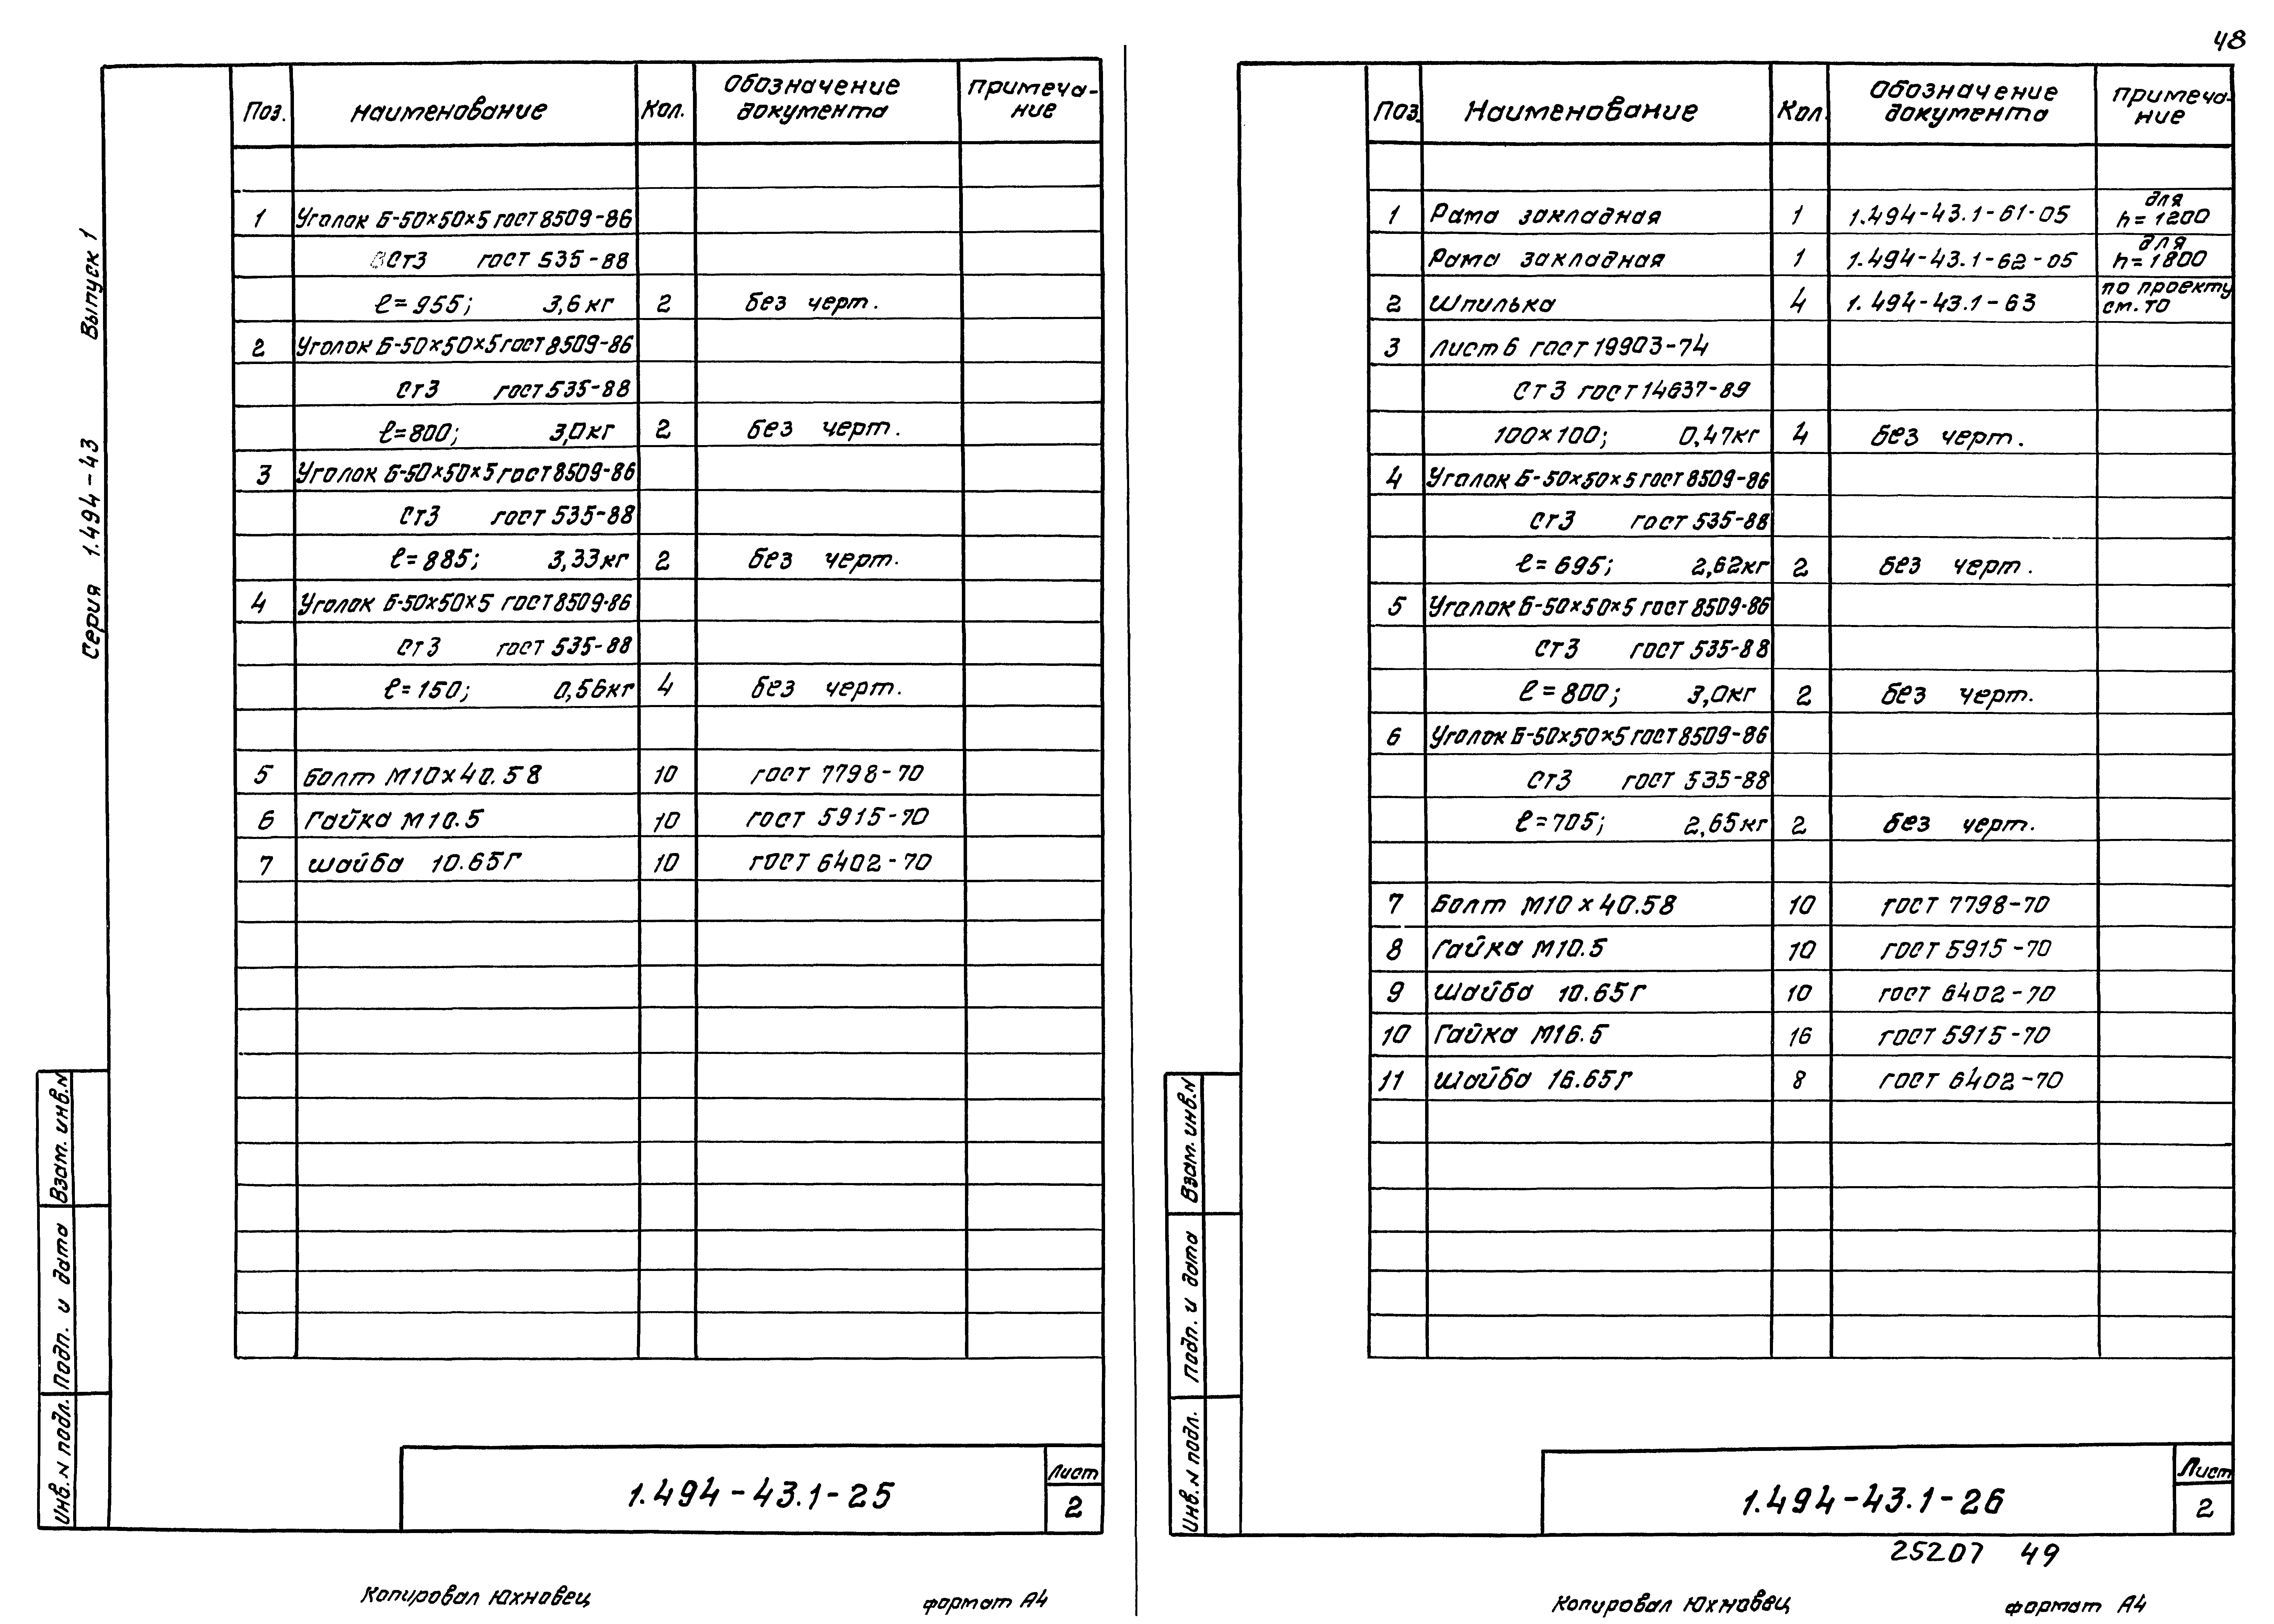 48
Серия 1.494-43 Выпуск 1
Поз. Наименование Кол. Обозначение документа Примеча-ние
1 Уголок Б-50×50×5 ГОСТ 8509-86
ВСт3 ГОСТ 535-88
ℓ=955; 3,6кг 2 без черт.
2 Уголок Б-50×50×5 ГОСТ 8509-86
Ст3 ГОСТ 535-88
ℓ=800; 3,0кг 2 без черт.
3 Уголок Б-50×50×5 ГОСТ 8509-86
Ст3 ГОСТ 535-88
ℓ=885; 3,33кг 2 без черт.
4 Уголок Б-50×50×5 ГОСТ 8509-86
Ст3 ГОСТ 535-88
ℓ=150; 0,56кг 4 без черт.
5 Болт М10×40.58 10 ГОСТ 7798-70
6 Гайка М10.5 10 ГОСТ 5915-70
7 Шайба 10.65Г 10 ГОСТ 6402-70
Взам. инв.N
Подп. и дата
Инв. N подл.
1.494-43.1-25
Лист
2
Копировал Юхновец формат А4
Поз. Наименование Кол. Обозначение документа Примеча-ние
1 Рама закладная 1 1.494-43.1-61-05 для h=1200
Рама закладная 1 1.494-43.1-62-05 для h=1800
2 Шпилька 4 1.494-43.1-63 по проекту см. ТО
3 Лист 6 ГОСТ 19903-74
Ст3 ГОСТ 14637-89
100×100; 0,47кг 4 без черт.
4 Уголок Б-50×50×5 ГОСТ 8509-86
Ст3 ГОСТ 535-88
ℓ=695; 2,62кг 2 без черт.
5 Уголок Б-50×50×5 ГОСТ 8509-86
Ст3 ГОСТ 535-88
ℓ=800; 3,0кг 2 без черт.
6 Уголок Б-50×50×5 ГОСТ 8509-86
Ст3 ГОСТ 535-88
ℓ=705; 2,65кг 2 без черт.
7 Болт М10×40.58 10 ГОСТ 7798-70
8 Гайка М10.5 10 ГОСТ 5915-70
9 Шайба 10.65Г 10 ГОСТ 6402-70
10 Гайка М16.5 16 ГОСТ 5915-70
11 Шайба 16.65Г 8 ГОСТ 6402-70
Взам. инв.N
Подп. и дата
Инв. N подл.
1.494-43.1-26
Лист
2
25207 49
Копировал Юхновец формат А4